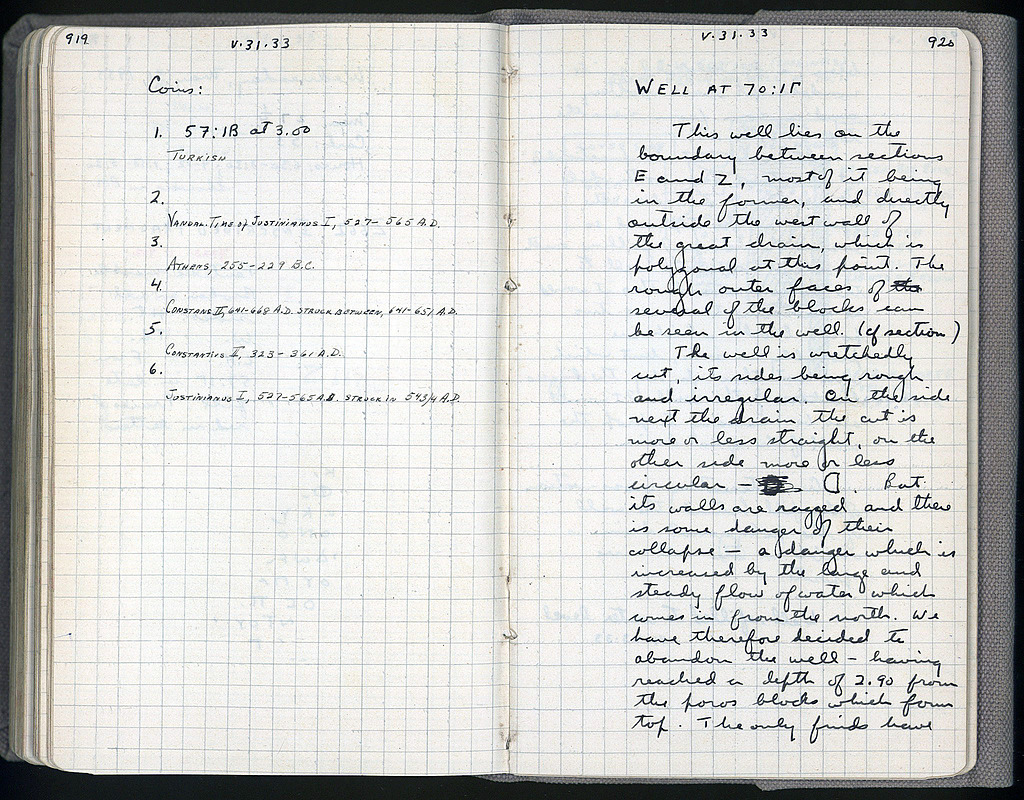 919
V.31.33
Coins:
1. 57:ΙΒ at 3.00
TURKISH
2.
VANDAL. TIME of JUSTINIANUS I, 527-565 A.D.
3.
ATHENS, 255-229 B.C.
4.
CONSTANS II, 641-668 A.D. STRUCK BETWEEN, 641-651 A.D.
5.
CONSTANTIUS II, 323-361 A.D.
6.
JUSTINIANUS I, 527-565 A.D. STRUCK IN 543/4 A.D.
V.31.33
920
WELL AT 70:ΙΓ
This well lies on the
boundary between sections
E and Z, most of it being
in the former, and directly
outside the west wall of
the great drain, which is
polygonal at this point. The
rough outer faces of the
several of the blocks can
be seen in the well. (cf section)
The well is wretchedly
cut, its sides being rough
and irregular. On the side
next the drain the cut is
more or less straight, on the
other side more or less
circular – . But
its walls are ragged and there
is some danger of their
collapse – a danger which is
increased by the large and
steady flow of water which
comes in from the north. We
have therefore decided to
abandon the well – having
reached a depth of 2.90 from
the poros blocks which form
top. The only finds have